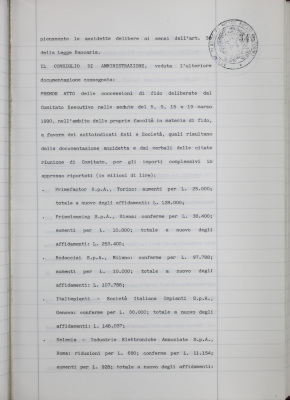 pienamente le anzidette delibere ai sensi dell'art. 38
della Legge Bancaria.
IL CONSIGLIO DI AMMINISTRAZIONE, veduta l'ulteriore
documentazione consegnata:
PRENDE ATTO delle concessioni di fido deliberate dal
Comitato Esecutivo nelle sedute del 5, 9, 15 e 19 marzo
1990, nell'ambito delle proprie facoltà in materia di fido,
a favore dei sottoindicati Enti e Società, quali risultano
dalla documentazione anzidetta e dai verbali delle citate
riunione di Comitato, per gli importi complessivi in
appresso riportati (in milioni di lire):
. Primefactor S.p.A., Torino: aumenti per L. 25.000;
totale a nuovo degli affidamenti: L. 125.000;
. Primeleasing S.p.A., Roma: conferme per L. 30.400;
aumenti per L. 10.000; totale a nuovo degli
affidamenti: L. 257.400;
. Rodocini S.p.A., Milano: conferme per L. 97.788;
aumenti per L. 10.000; totale a nuovo degli
affidamenti: L. 107.788;
. Italimpianti - Società Italiana Impianti S.p.A.,
Genova: conferme per L. 50.000; totale a nuovo degli
affidamenti: L. 148.037;
. Selenia - Industrie Elettroniche Associate S.p.A.,
Roma: riduzioni per L. 880; conferme per L. 11.154;
aumenti per L. 929; totale a nuovo degli affidamenti: